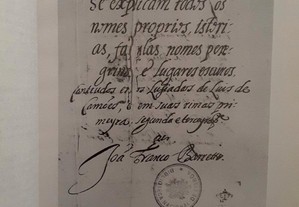 se explicam todos os
nomes proprios, istori-
as, fabulas nomes pere-
grinos e lugares escuros,
Conteudos en os Lusiadas de Luis de
Camões, e em suas rimas pri-
meyra segunda e terceyra
João Franco Barreto